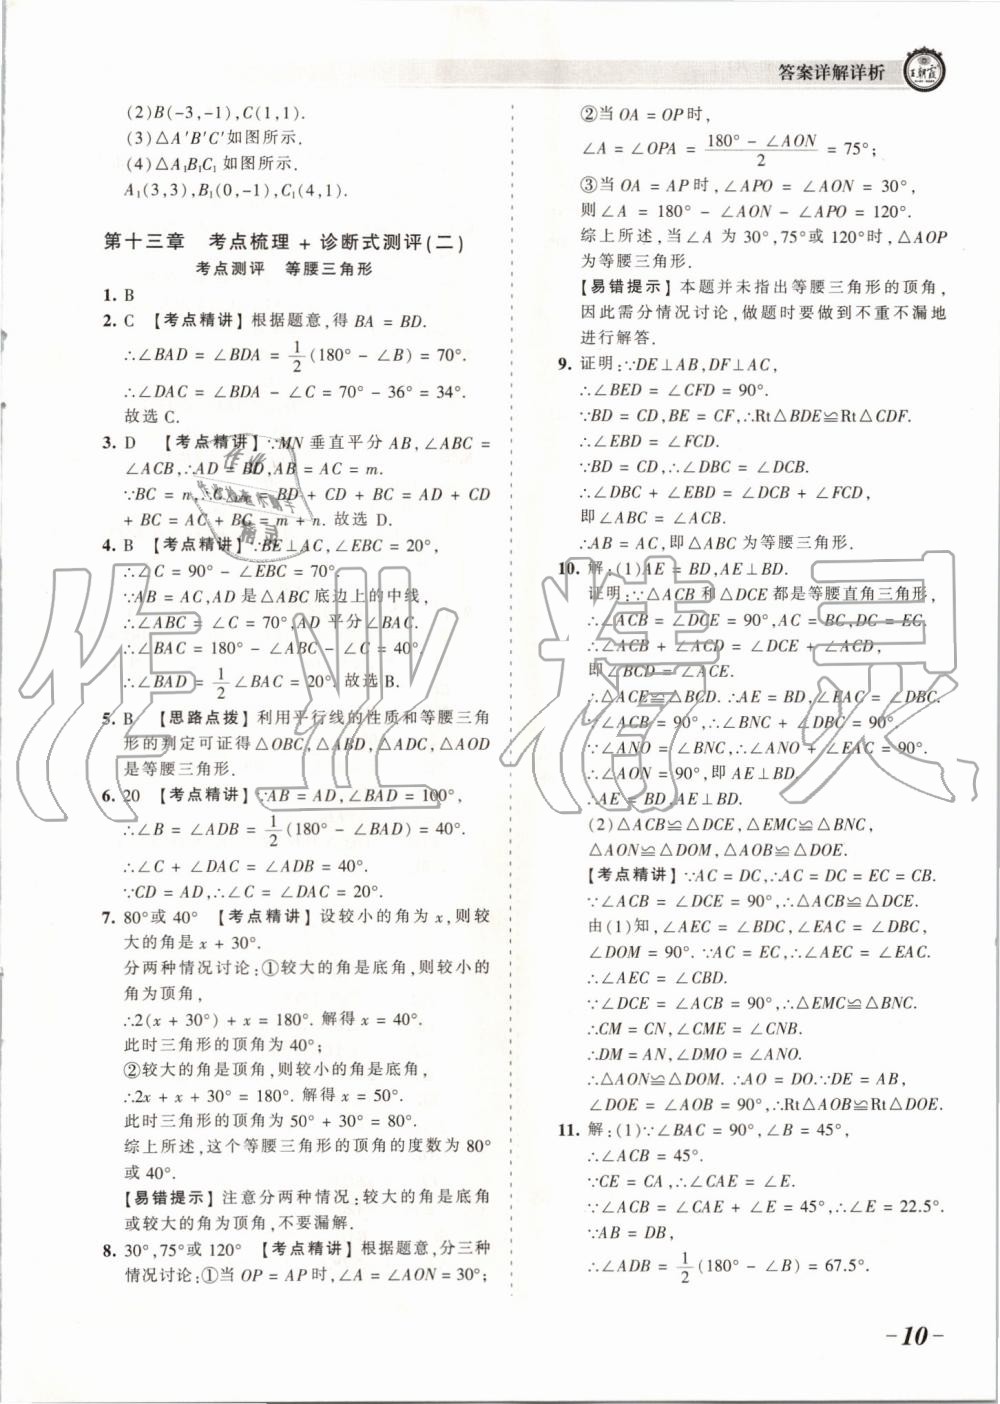 答案详解详析
王朝霞
(2)B(-3,-1),C(1,1).
(3)△A′B′C′如图所示.
(4)△A₁B₁C₁如图所示.
A₁(3,3),B₁(0,-1),C₁(4,1).
第十三章 考点梳理 + 诊断式测评(二)
考点测评 等腰三角形
1. B
2. C 【考点精讲】根据题意,得 BA = BD.
∴∠BAD = ∠BDA = 1/2(180° - ∠B) = 70°.
∴∠DAC = ∠BDA - ∠C = 70° - 36° = 34°.
故选 C.
3. D 【考点精讲】∵MN 垂直平分 AB,∠ABC =
∠ACB,∴AD = BD,AB = AC = m.
∵BC = n,∴C = BD + CD + BC = AD + CD
+ BC = AC + BC = m + n. 故选 D.
4. B 【考点精讲】∵BE⊥AC,∠EBC = 20°,
∴∠C = 90° - ∠EBC = 70°.
∵AB = AC,AD 是△ABC 底边上的中线,
∴∠ABC = ∠C = 70°,AD 平分∠BAC.
∴∠BAC = 180° - ∠ABC - ∠C = 40°.
∴∠BAD = 1/2∠BAC = 20°. 故选 B.
5. B 【思路点拨】利用平行线的性质和等腰三角
形的判定可证得△OBC,△ABD,△ADC,△AOD
是等腰三角形.
6. 20 【考点精讲】∵AB = AD,∠BAD = 100°,
∴∠B = ∠ADB = 1/2(180° - ∠BAD) = 40°.
∴∠C + ∠DAC = ∠ADB = 40°.
∵CD = AD,∴∠C = ∠DAC = 20°.
7. 80°或 40° 【考点精讲】设较小的角为 x,则较
大的角是 x + 30°.
分两种情况讨论:①较大的角是底角,则较小的
角为顶角,
∴2(x + 30°) + x = 180°. 解得 x = 40°.
此时三角形的顶角为 40°;
②较大的角是顶角,则较小的角为底角,
∴2x + x + 30° = 180°. 解得 x = 50°.
此时三角形的顶角为 50° + 30° = 80°.
综上所述,这个等腰三角形的顶角的度数为 80°
或 40°.
【易错提示】注意分两种情况:较大的角是底角
或较大的角为顶角,不要漏解.
8. 30°,75°或 120° 【考点精讲】根据题意,分三种
情况讨论:①当 OP = AP 时,∠A = ∠AON = 30°;
②当 OA = OP 时,
∠A = ∠OPA = (180° - ∠AON)/2 = 75°;
③当 OA = AP 时,∠APO = ∠AON = 30°,
则∠A = 180° - ∠AON - ∠APO = 120°.
综上所述,当∠A 为 30°,75°或 120°时,△AOP
为等腰三角形.
【易错提示】本题并未指出等腰三角形的顶角,
因此需分情况讨论,做题时要做到不重不漏地
进行解答.
9. 证明:∵DE⊥AB,DF⊥AC,
∴∠BED = ∠CFD = 90°.
∵BD = CD,BE = CF,∴Rt△BDE≌Rt△CDF.
∴∠EBD = ∠FCD.
∵BD = CD,∴∠DBC = ∠DCB.
∴∠DBC + ∠EBD = ∠DCB + ∠FCD,
即∠ABC = ∠ACB.
∴AB = AC,即△ABC 为等腰三角形.
10. 解:(1)AE = BD,AE⊥BD.
证明:∵△ACB 和△DCE 都是等腰直角三角形,
∴∠ACB = ∠DCE = 90°,AC = BC,DC = EC.
∴∠ACB + ∠ACD = ∠DCE + ∠ACD,
即∠BCD = ∠ACE.
∴△ACE≌△BCD. ∴AE = BD,∠EAC = ∠DBC.
∵∠ACB = 90°,∴∠BNC + ∠DBC = 90°.
∵∠ANO = ∠BNC,∴∠ANO + ∠EAC = 90°.
∴∠AON = 90°,即 AE⊥BD.
∴AE = BD,AE⊥BD.
(2)△ACB≌△DCE,△EMC≌△BNC,
△AON≌△DOM,△AOB≌△DOE.
【考点精讲】∵AC = DC,∴AC = DC = EC = CB.
∵∠ACB = ∠DCE = 90°,∴△ACB≌△DCE.
由(1)知,∠AEC = ∠BDC,∠EAC = ∠DBC,
∠DOM = 90°. ∵AC = EC,∴∠EAC = ∠AEC.
∴∠AEC = ∠CBD.
∵∠DCE = ∠ACB = 90°,∴△EMC≌△BNC.
∴CM = CN,∠CME = ∠CNB.
∴DM = AN,∠DMO = ∠ANO.
∴△AON≌△DOM. ∴AO = DO. ∵DE = AB,
∠DOE = ∠AOB = 90°,∴Rt△AOB≌Rt△DOE.
11. 解:(1)∵∠BAC = 90°,∠B = 45°,
∴∠ACB = 45°.
∵CE = CA,∴∠CAE = ∠E.
∵∠ACB = ∠CAE + ∠E = 45°,∴∠E = 22.5°.
∵AB = DB,
∴∠ADB = 1/2(180° - ∠B) = 67.5°.
-10-
作业精灵